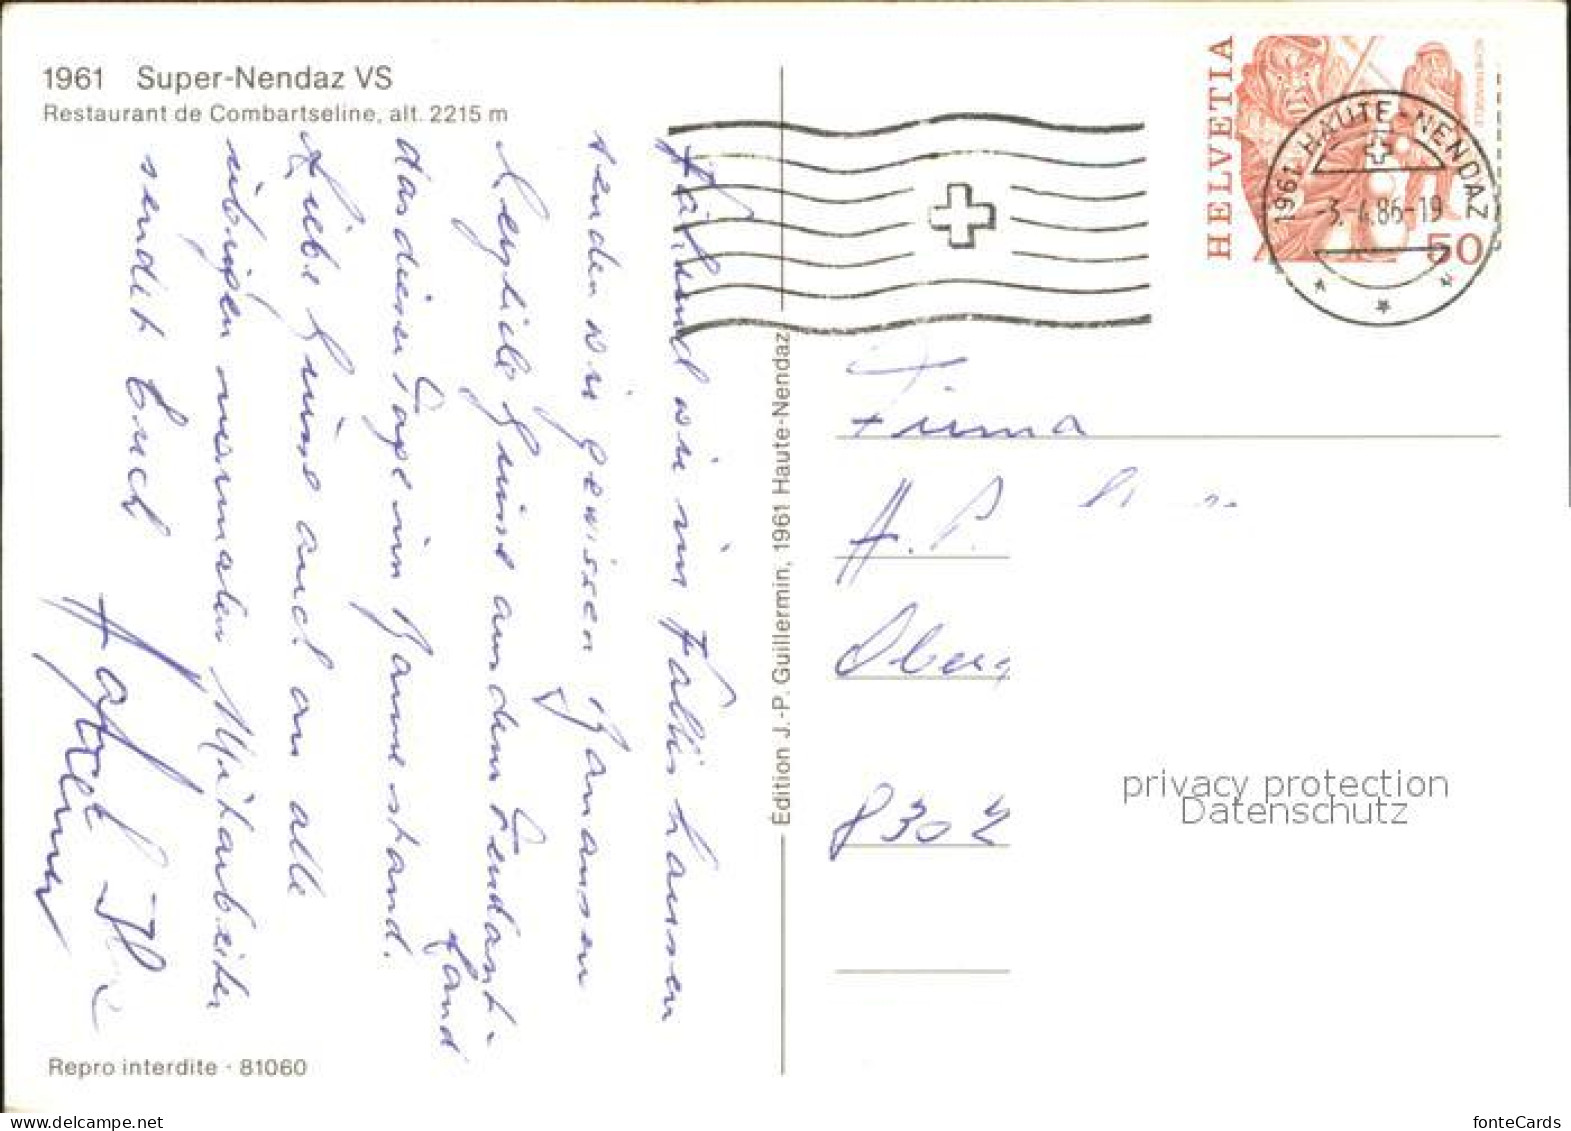 1961 Super-Nendaz VS
Restaurant de Combartseline, alt. 2215 m
während wir im Wallis hausen
senden wir
Herzliche Grüsse aus dem Fendant-
Land
das dieser Tage im Banne stand.
Liebe Grüsse auch an alle
übrigen normalen Mitarbeiter
sendet Euch
Repro interdite · 81060
Édition J.-P. Guillermin, 1961 Haute-Nendaz
HELVETIA
50
1961 HAUTE-NENDAZ
-3.-4.86-19
Firma
H. P.
8302
privacy protection
Datenschutz
delcampe.net
fonteCards